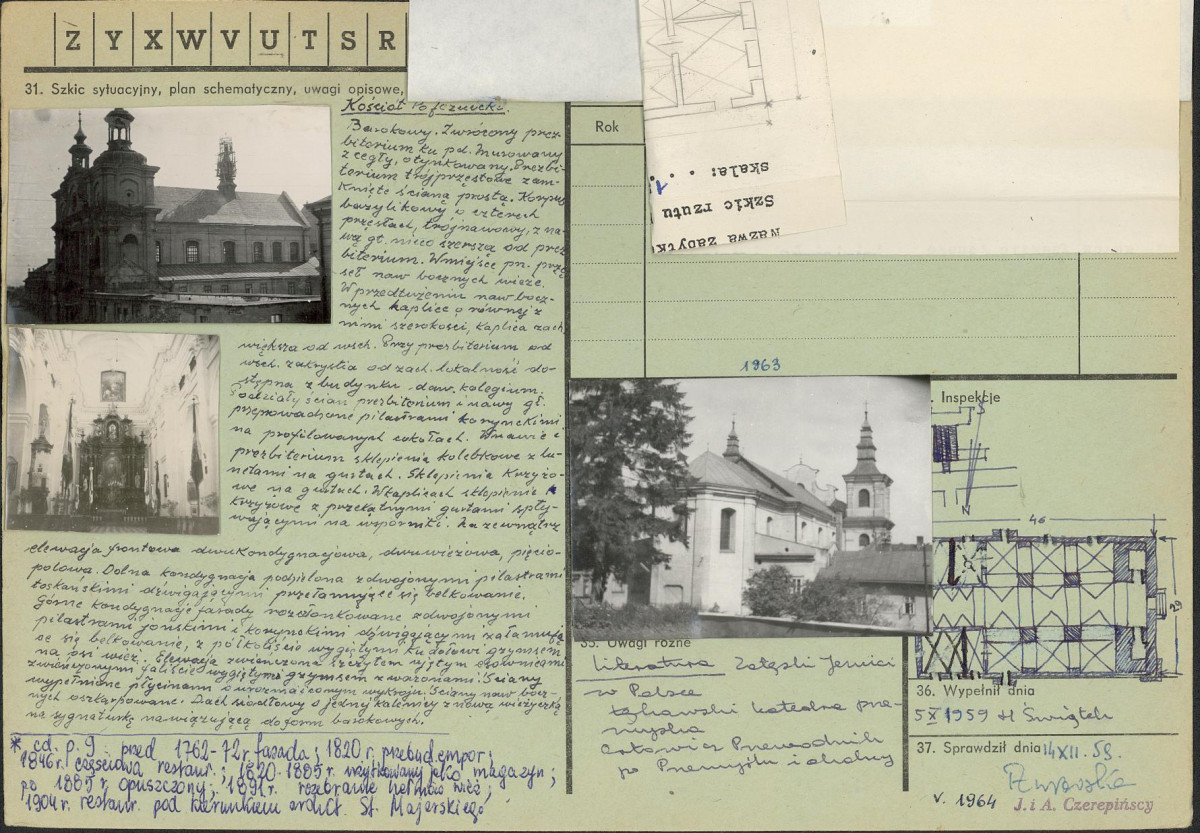 Z Y X W V U T S R
31. Szkic sytuacyjny, plan schematyczny, uwagi opisowe,
Kościół Pojezuicki.
Barokowy. Zwrócony prez-
biterium ku pd. Murowany
z cegły, otynkowany. Prezbi-
terium trójprzęsłowe zam-
knięte ścianą prostą. Korpus
bazylikowy o czterech
przęsłach, trójnawowy, z na-
wą gł. nieco szerszą od prez-
biterium. W miejsce pn. przę
seł naw bocznych wieże.
W przedłużeniu naw bocz-
nych kaplice o równej z
nimi szerokości, kaplica zach.
większa od wsch. Przy prezbiterium od
wsch. zakrystia od zach. lokalność do-
stępna z budynku daw. kolegium.
Podziały ścian prezbiterium i nawy gł.
przeprowadzone pilastrami korynckimi
na profilowanych cokołach. W nawie i
prezbiterium sklepienia kolebkowe z lu-
netami na gurtach. Sklepienia krzyżo-
we na gurtach. W kaplicach sklepienia
krzyżowe z przekątnymi gurtami spły-
wającymi na wsporniki. Na zewnątrz
elewacja frontowa dwukondygnacjowa, dwuwieżowa, pięcio-
polowa. Dolna kondygnacja podzielona zdwojonymi pilastrami
toskańskimi dźwigającymi przełamujące się belkowanie.
Górne kondygnacje fasady rozczłonkowane zdwojonymi
pilastrami jońskimi i korynckimi dźwigającymi załamują
ce się belkowanie, z półkoliście wygiętymi ku dołowi gzymsem
na osi wież. Elewacja zwieńczona szczytem ujętym spływami
zwieńczonym faliście wygiętym gzymsem z wazonami. Ściany
wypełnione płycinami o urozmaiconym wykroju. Ściany naw bocz-
nych oszkarpowane. Dach siodłowy o jednej kalenicy z nową wieżyczką
na sygnaturkę nawiązującą do form barokowych.
* cd. p. 9. przed 1762-72 r fasada; 1820 r. przebud. empor;
1846 r. częściowa restaur.; 1820-1885 r. użytkowany jako magazyn;
po 1885 r. opuszczony; 1891 r. rozebranie hełmów wież;
1904 r. restaur. pod kierunkiem archit. St. Majerskiego
Rok
1963
skala: . . . 1
Szkic rzutu
Nazwa zabytk
. Inspekcje
46
29
35. Uwagi różne
Literatura Załęski Jezuici
w Polsce
Łękawski Katedra prze-
myska
Orłowicz Przewodnik
po Przemyślu i okolicy
36. Wypełnił dnia
5 X 1959 H Świątek
37. Sprawdził dnia 14 XII. 59.
V. 1964 J. i A. Czerepińscy